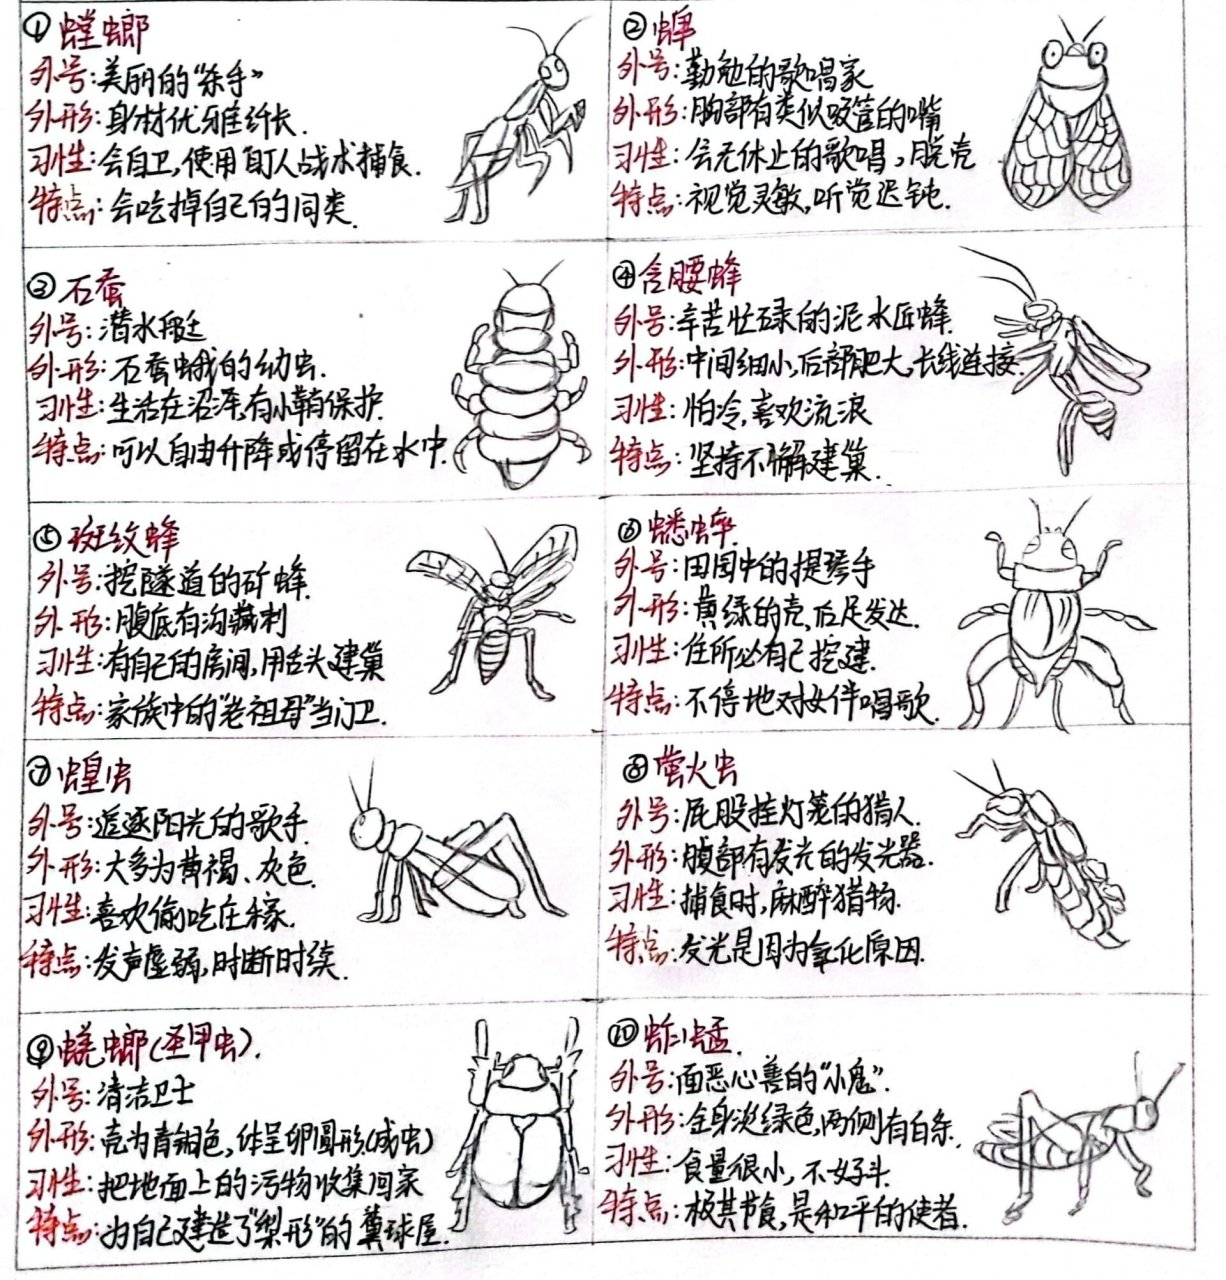 ①螳螂
外号:美丽的"杀手"
外形:身材优雅纤长.
习性:会自卫,使用盯人战术捕食.
特点:会吃掉自己的同类.
②蝉
外号:勤勉的歌唱家
外形:胸部有类似吸管的嘴
习性:会无休止的歌唱,脱壳
特点:视觉灵敏,听觉迟钝.
③石蚕
外号:潜水艇
外形:石蚕蛾的幼虫.
习性:生活在沼泽,有小鞘保护.
特点:可以自由升降或停留在水中.
④舍腰蜂
外号:辛苦忙碌的泥水匠蜂.
外形:中间细小,后部肥大,长线连接.
习性:怕冷,喜欢流浪
特点:坚持不懈建巢.
⑤斑纹蜂
外号:挖隧道的矿蜂.
外形:腹底有沟藏刺
习性:有自己的房间,用舌头建巢
特点:家族中的"老祖母"当门卫.
⑥蟋蟀.
外号:田园中的提琴手
外形:黄绿的壳,后足发达.
习性:住所必自己挖建.
特点:不停地对女伴唱歌.
⑦蝗虫
外号:追逐阳光的歌手.
外形:大多为黄褐、灰色.
习性:喜欢偷吃庄稼.
特点:发声虚弱,时断时续.
⑧萤火虫
外号:屁股挂灯笼的猎人.
外形:腹部有发光的发光器.
习性:捕食时,麻醉猎物.
特点:发光是因为氧化原因.
⑨蜣螂(圣甲虫).
外号:清洁卫士
外形:壳为青铜色,体呈卵圆形(成虫)
习性:把地面上的污物收集回家
特点:为自己建造了"梨形"的粪球屋.
⑩蚱蜢.
外号:面恶心善的"小鬼".
外形:全身淡绿色,两侧有白条.
习性:食量很小,不好斗.
特点:极其节食,是和平的使者.